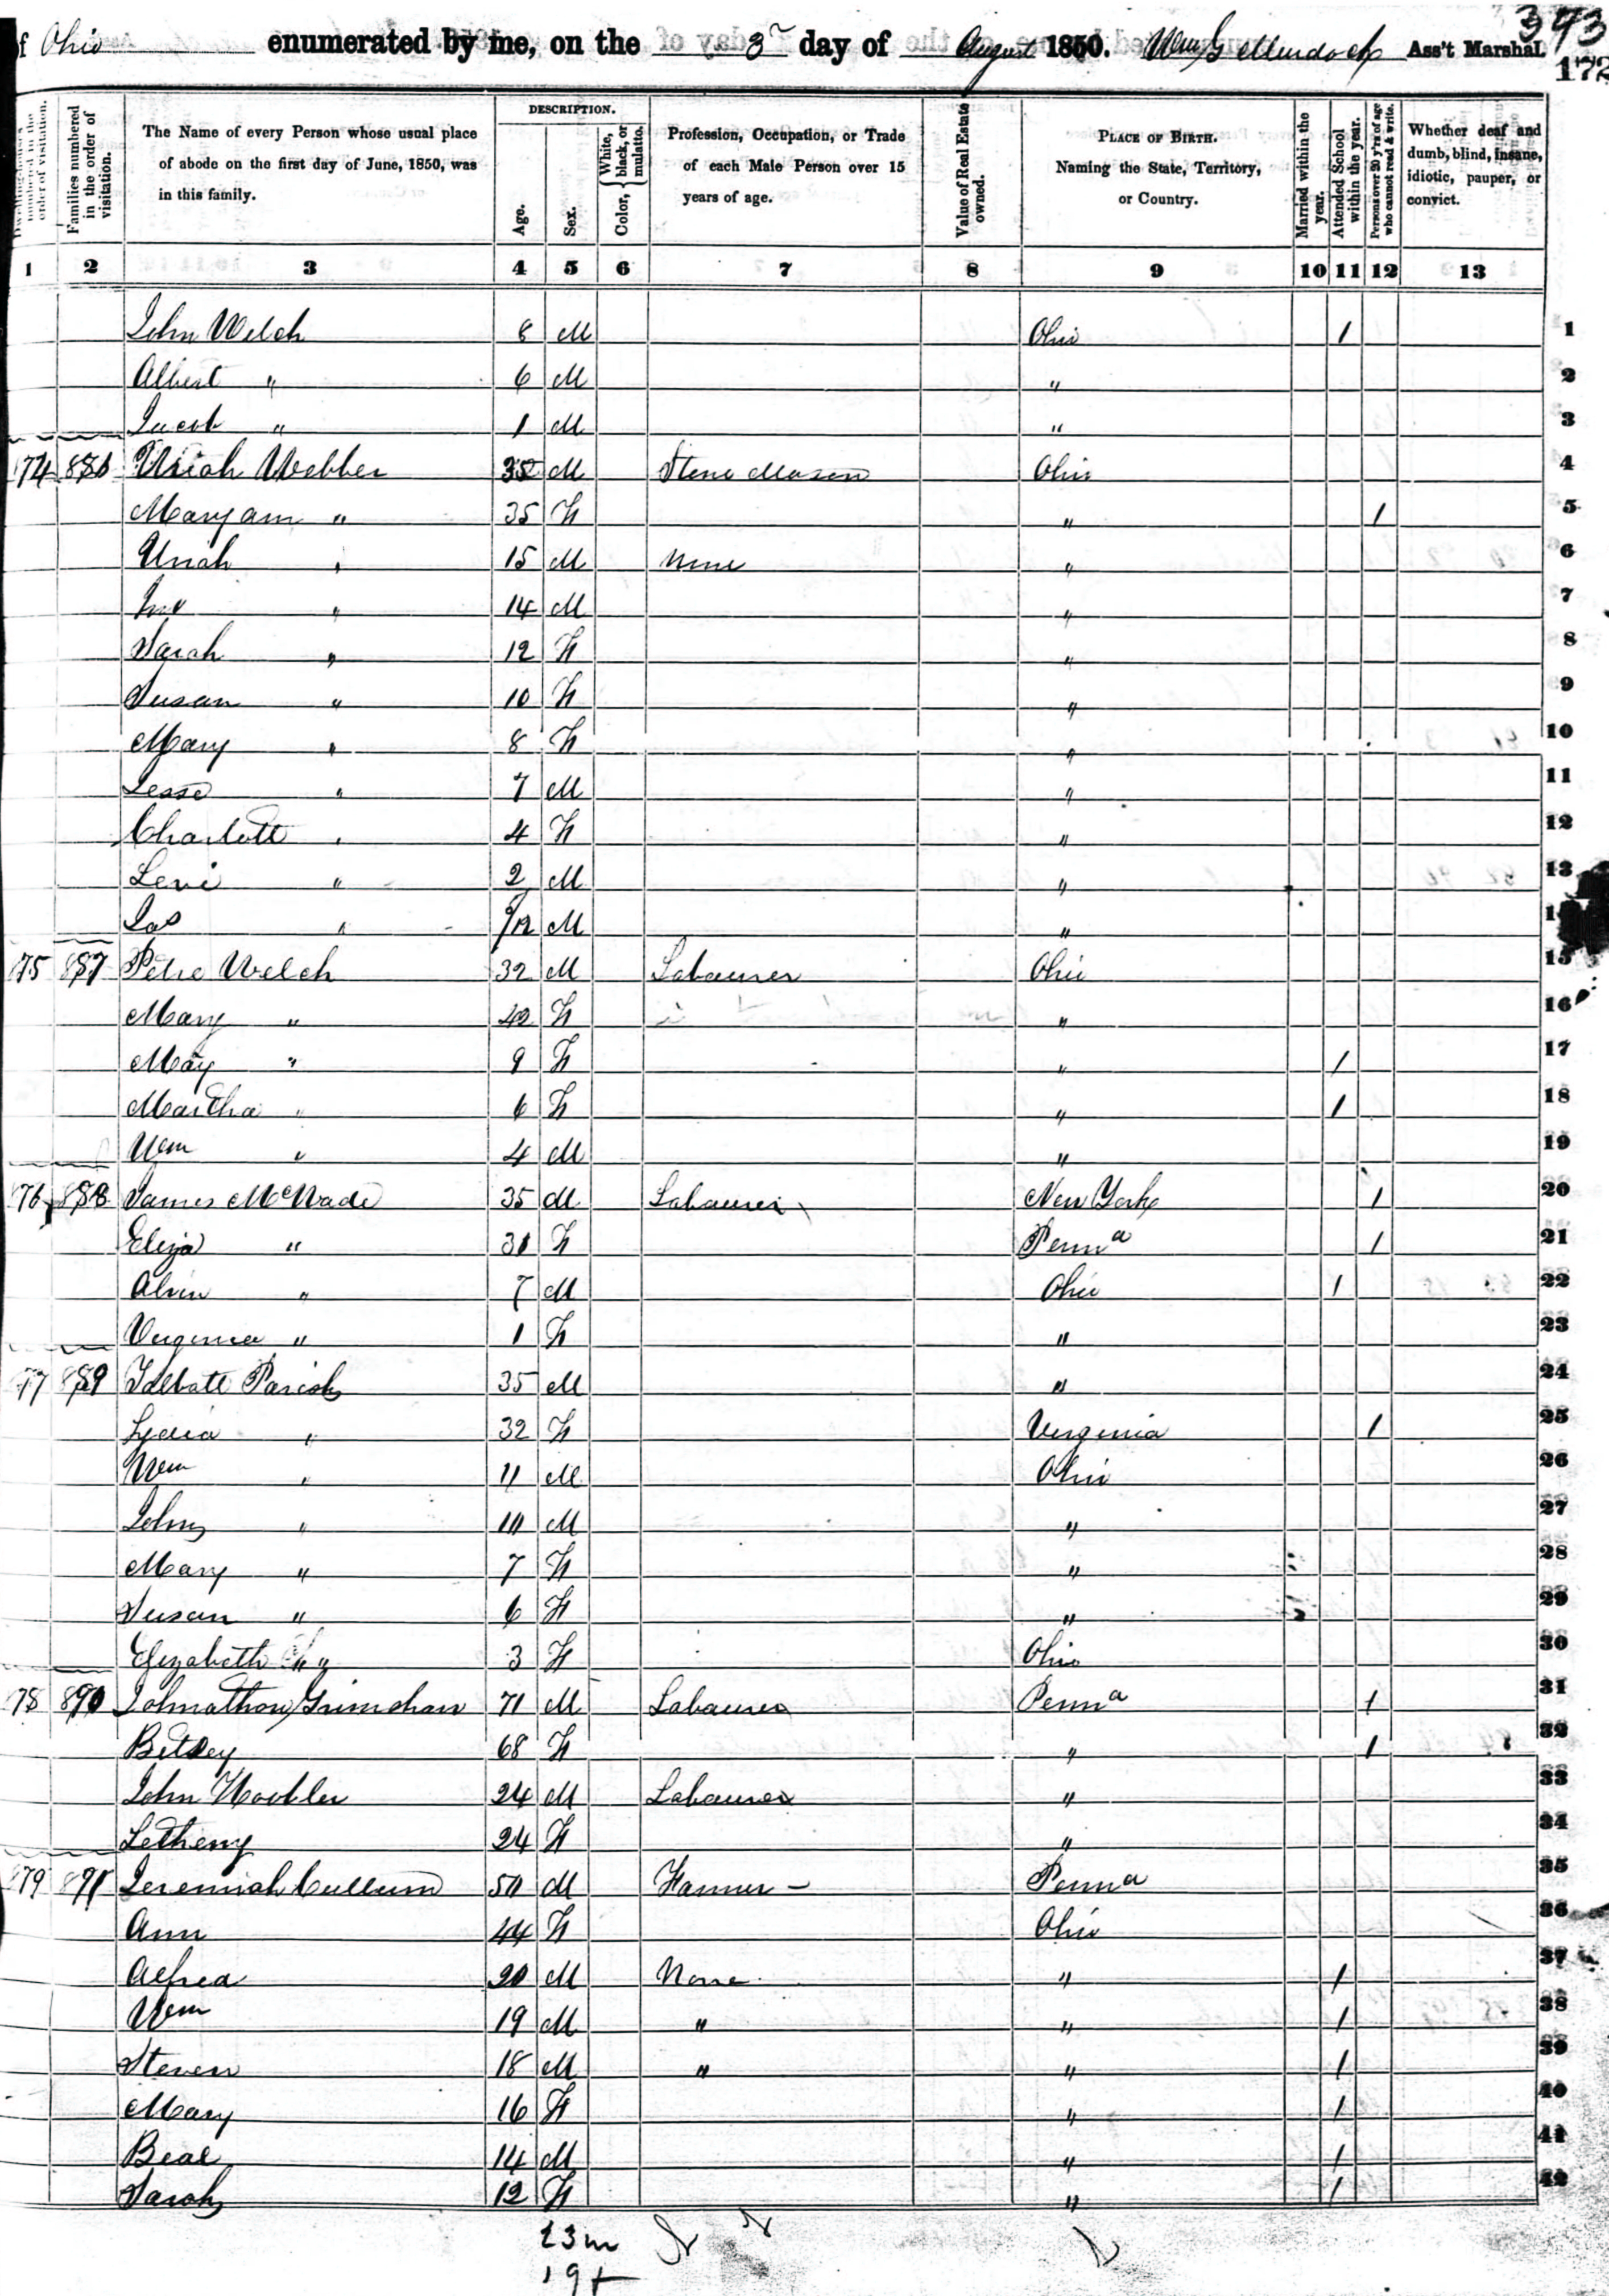 of Ohio enumerated by me, on the 3r day of August 1850. Wm G Murdock Ass't Marshal. 393
172
Families numbered in the order of visitation.
The Name of every Person whose usual place of abode on the first day of June, 1850, was in this family.
DESCRIPTION.
Age.
Sex.
Color, { White, black, or mulatto.
Profession, Occupation, or Trade of each Male Person over 15 years of age.
Value of Real Estate owned.
PLACE OF BIRTH. Naming the State, Territory, or Country.
Married within the year.
Attended School within the year.
Persons over 20 y'rs of age who cannot read & write.
Whether deaf and dumb, blind, insane, idiotic, pauper, or convict.
1 2 3 4 5 6 7 8 9 10 11 12 13
John Welch 8 M Ohio / 1
Albert " 6 M " 2
Jacob " 1 M " 3
74 886 Uriah Webber 35 M Stone Mason Ohio 4
Mary ann " 35 F " / 5
Uriah " 15 M None " 6
" 14 M " 7
Sarah " 12 F " 8
Susan " 10 F " 9
Mary " 8 F " 10
Jesse " 7 M " 11
Charlott " 4 F " 12
Levi " 2 M " 13
Jas " /12 M "
75 887 Welch 32 M Labourer Ohio 15
Mary " 42 F " 16
May " 9 F " / 17
Martha " 6 F " / 18
Wm " 4 M " 19
76 888 James McWade 35 M Labourer New York / 20
Eliza " 31 F Penna / 21
Alvin " 7 M Ohio / 22
Virginia " 1 F " 23
77 889 Talbott Parish 35 M " 24
Lydia " 32 F Virginia / 25
Wm " 11 M Ohio 26
John " 10 M " 27
Mary " 7 F " 28
Susan " 6 F " 29
Elizabeth " 3 F Ohio 30
78 890 Johnathon Grimshaw 71 M Labourer Penna / 31
Betsey 68 F " / 32
John Hoobler 24 M Labourer " 33
Letheny 24 F " 34
79 891 Jeremiah Cullum 50 M Farmer - Penna 35
Ann 44 F Ohio 36
Alfred 20 M None " / 37
Wm 19 M " " / 38
Steven 18 M " " / 39
Mary 16 F " / 40
Beal 14 M " / 41
Sarah 12 F " / 42
23 m
19 f